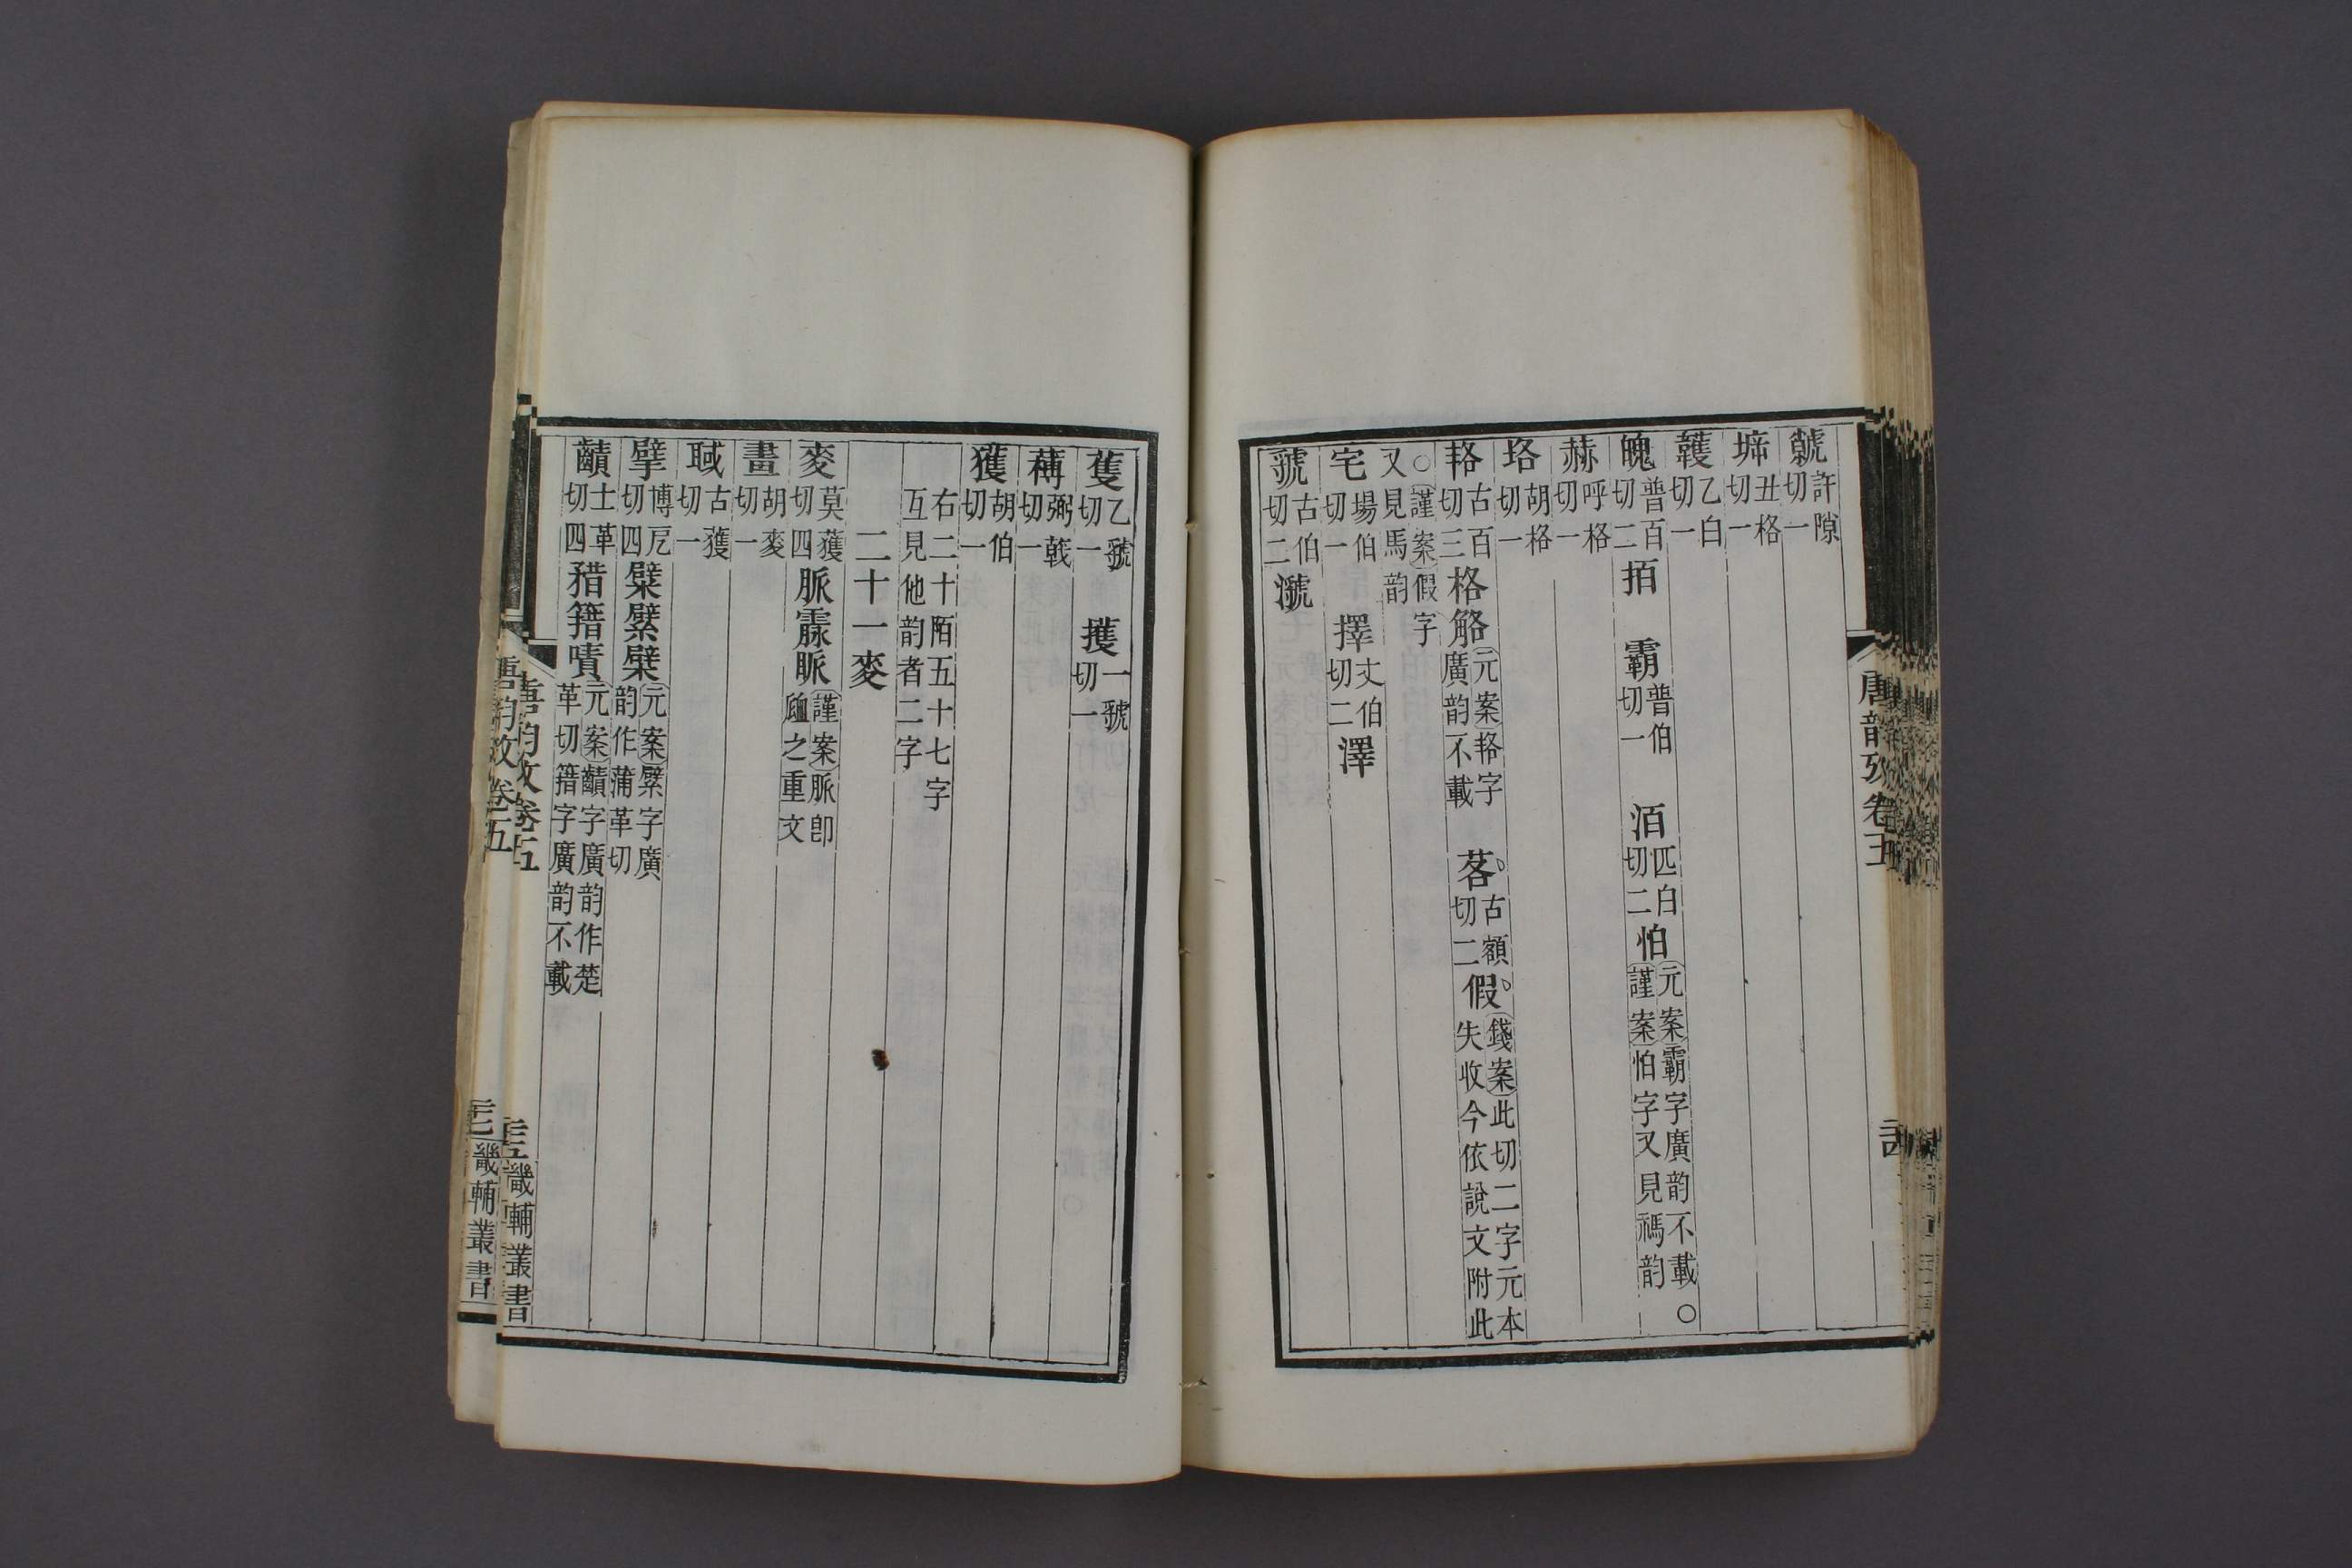 虩許隙切一
㙤丑格切一
韄乙白切一
䰟普百切二 拍 霸普伯切一 洦匹白切二 怕元案霸字廣韵不載○謹案怕字又見禡韵
赫呼格切一
垎胡格切一
茖古百切三 格 觡元案茖字廣韵不載 茖古額切二 假錢案此切二字元本失收今依說文附此
○謹案假字又見馬韵
宅場伯切一 擇丈伯切二 澤
虢古伯切二 㶁
蒦乙虢切一 擭一虢切一
欂弼戟切一
獲胡伯切一
右二十陌五十七字互見他韵者二字
二十一麥
麥莫獲切四 脈 霡 脈謹案脈即衇之重文
畫胡麥切一
聝古獲切一
擘博戹切四 糪 檗 薜元案檗字廣韵作蒲革切
齰士革切四 矠 簎 嘖元案齰字廣韵作楚革切簎字廣韵不載
唐韵攷卷五
畿輔叢書
唐韵攷卷五
畿輔叢書
唐韵攷卷五